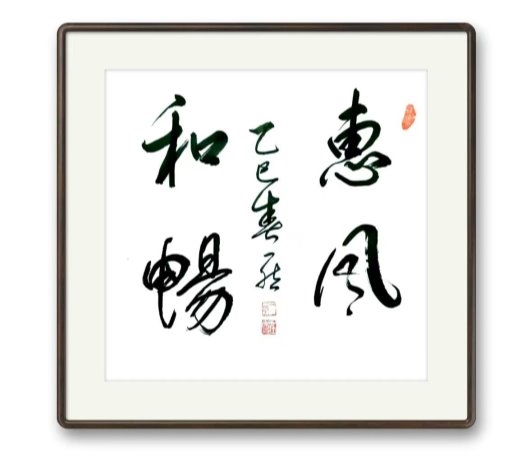 惠风
和暢
乙巳春